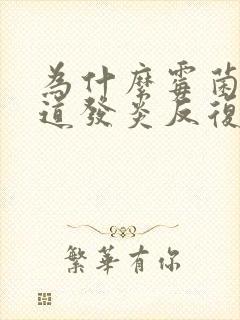 為什麼霉菌
道發炎反復
繁華有你